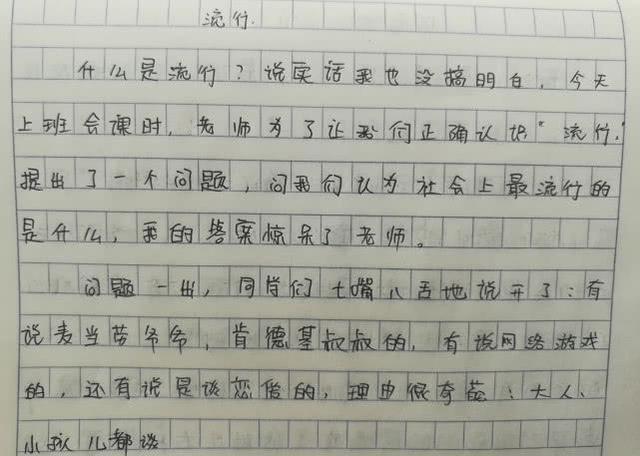 流行.
什么是流行？说实话我也没搞明白，今天
上班会课时，老师为了让我们正确认识“流行”
提出了一个问题，问我们认为社会上最流行的
是什么，我的答案惊呆了老师。
问题一出，同学们七嘴八舌地说开了：有
说麦当劳爷爷，肯德基叔叔的，有说网络游戏
的，还有说是谈恋爱的，理由很奇葩：大人、
小孩儿都谈